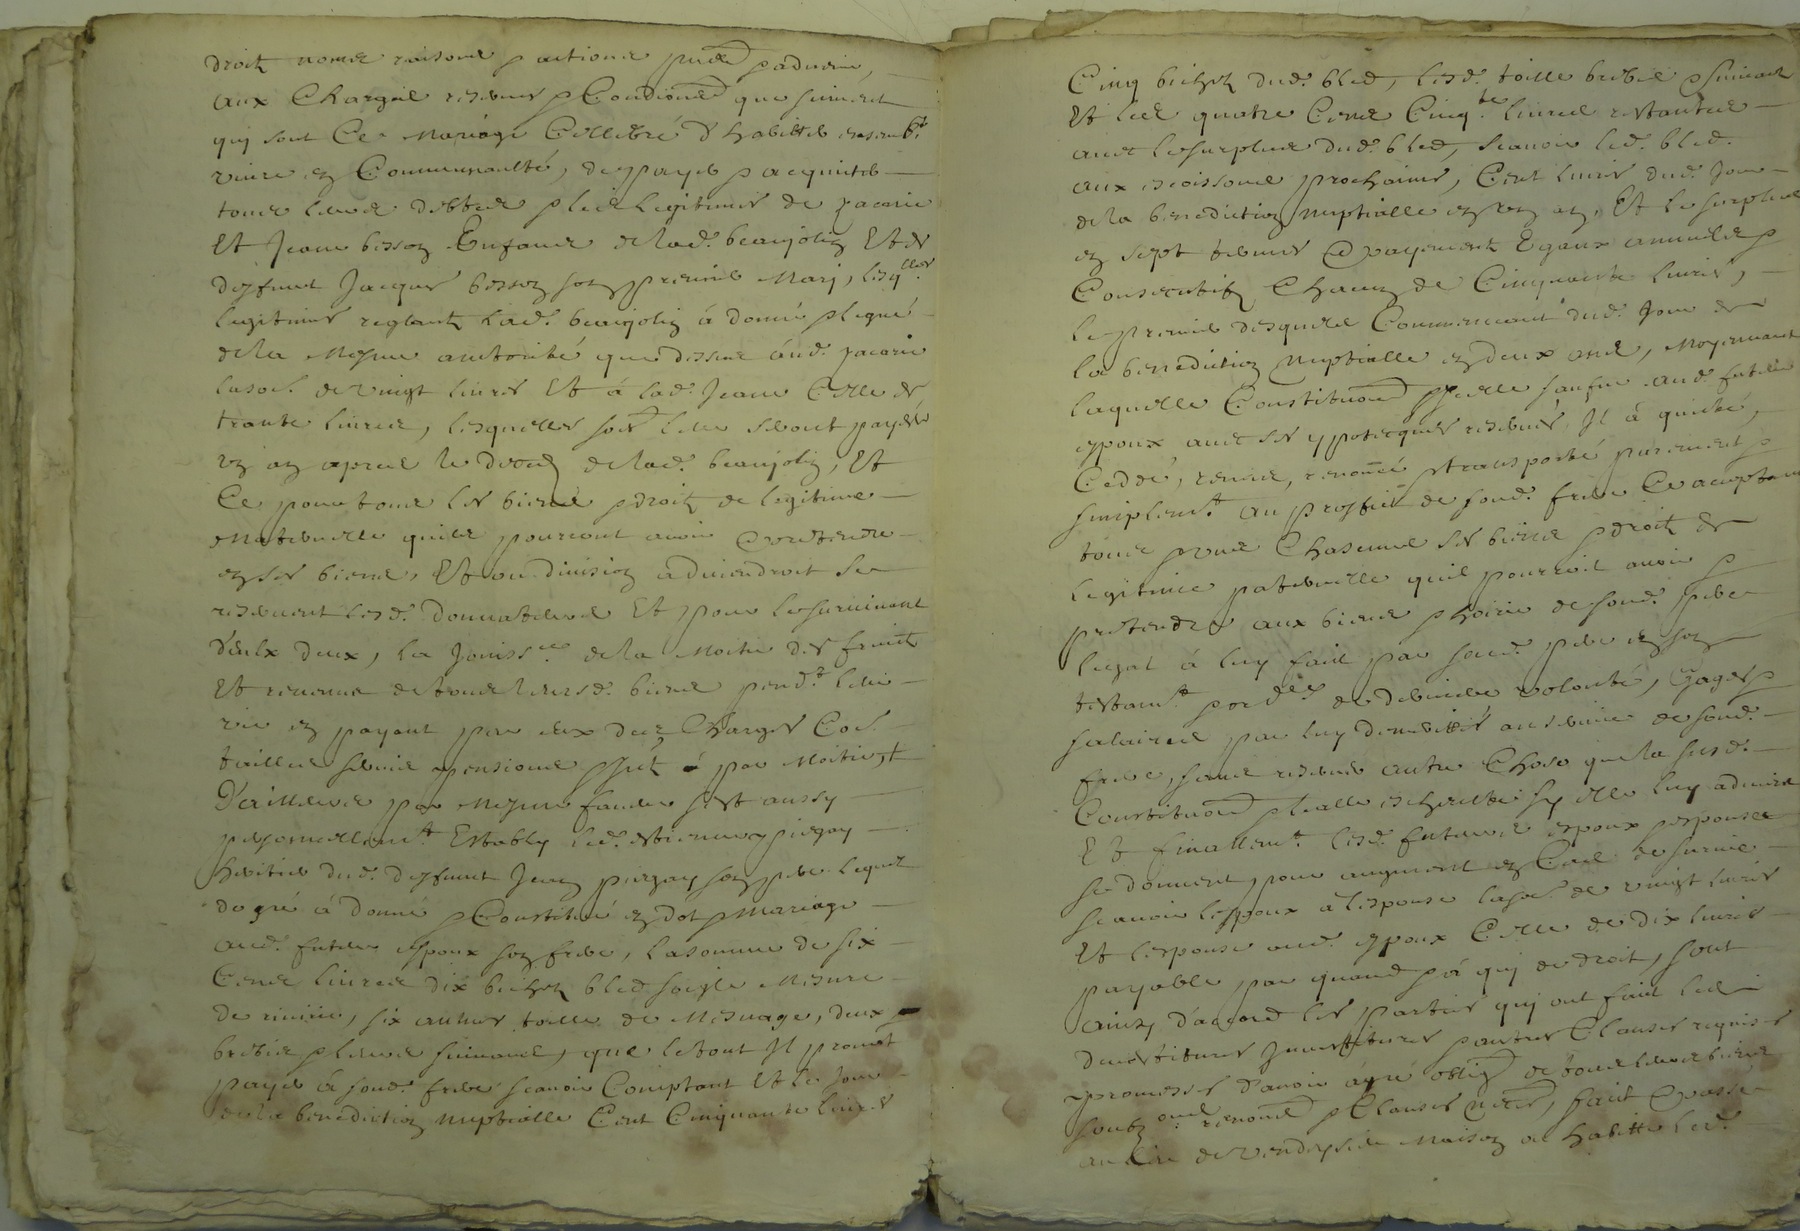 droitz noms raisons & actions pnts & advenir,
aux Charges reserves & Conditions que suivent
qui sont Ce Mariage Cellebré d'habitter ensembt
vivre en Communaulté, de payer & acquitter
tous leurs debtes & lies legitimes de
Et Jeanne besson Enfans de lad. beaujolin Et de
deffunt Jacques besson son premier Mary, lesqlles
legitimes reglant lad. beaujolin à donné & legué
de la Mesme authorité que dessus aud.
la so. de vingt livres Et à lad. Jeanne Celle de
trante livres, lesquelles soes leur seront payées
un an apres le deces de lad. beaujolin, Et
Ce pour tous les biens & droitz de legitime
Maternelle quils pourront avoir & pretendre
en ses biens, Et ou division adviendroit Se
reservent lesd. donnateurs Et pour le survivant
d'eulx deux, la Jouissce de la Moitié des fruitz
Et revenus de tous leursd. biens pendt leur
vie en payant par eux des Charges Co.
tailles servis & pensions par Moitié, +
D'ailleurs par Mesme faveur s'est aussy
personnellemt Estably led. estienne
heritier dud. deffunt Jean son pere lequel
de gré à donné & Constitué en dot & Mariage
aud. futur espoux son frere, la somme de six
Cents livres dix bichetz bled soigle Mesure
de riverie, six aulnes toille de Mesnage, deux
brebis & leurs suivants, que le tout Il promet
payer à sond. frere scavoir Comptant Et le Jour
de la benediction nuptialle Cent Cinquante livres
Cinq bichetz dud. bled, lesd. toille brebis & suivants
Et les quatre Cents Cinqte livres restantes
avec le surplus dud. bled, scavoir led. bled
aux moissons prochaines, Cent livres dud. Jour
de la benediction nuptialle en un an, Et le surplus
en sept termes & payements Egaux annuels &
Consecutifz Chacun de Cinquante livres,
le premier desquels Commencant dud. Jour de
la benediction nuptialle en deux ans, Moyennant
laquelle Constitution & icelle sauf aud. futur
espoux avec ses ypotecques reservés, Il à quitté,
Ceddé, remis, renoncé & transporté purement &
simplemt au proffit de sond. frere Ce acceptant
tous & uns Chascuns ses biens & droitz de
legitime paternelle quil pourroit avoir &
pretendre aux biens & hoirie de sond. pere
legat à luy fait par sond. pere en son
testamt & ordce de derniere volonté, Gages &
salaires par luy demerittés au service de sond.
frere, sans reserver autre Chose que la susd.
Constitution & loialle escheutte sy elle luy advient
Et finallemt lesd. futurs espoux & espouse
se donnent pour augment en Cas de survie
scavoir l'espoux à l'espouse la so. de vingt livres
Et l'espouse aud. espoux Celle de dix livres
payable par quand & à qui de droit, sont
ainsy d'accord les parties qui ont fait les
devestitures Investitures & autres Clauses requises
promesses d'avoir à gré oblig. de tous leurs biens
soubz renons & Clauses necres, fait & passé
au lieu de Maison ou habitte led.